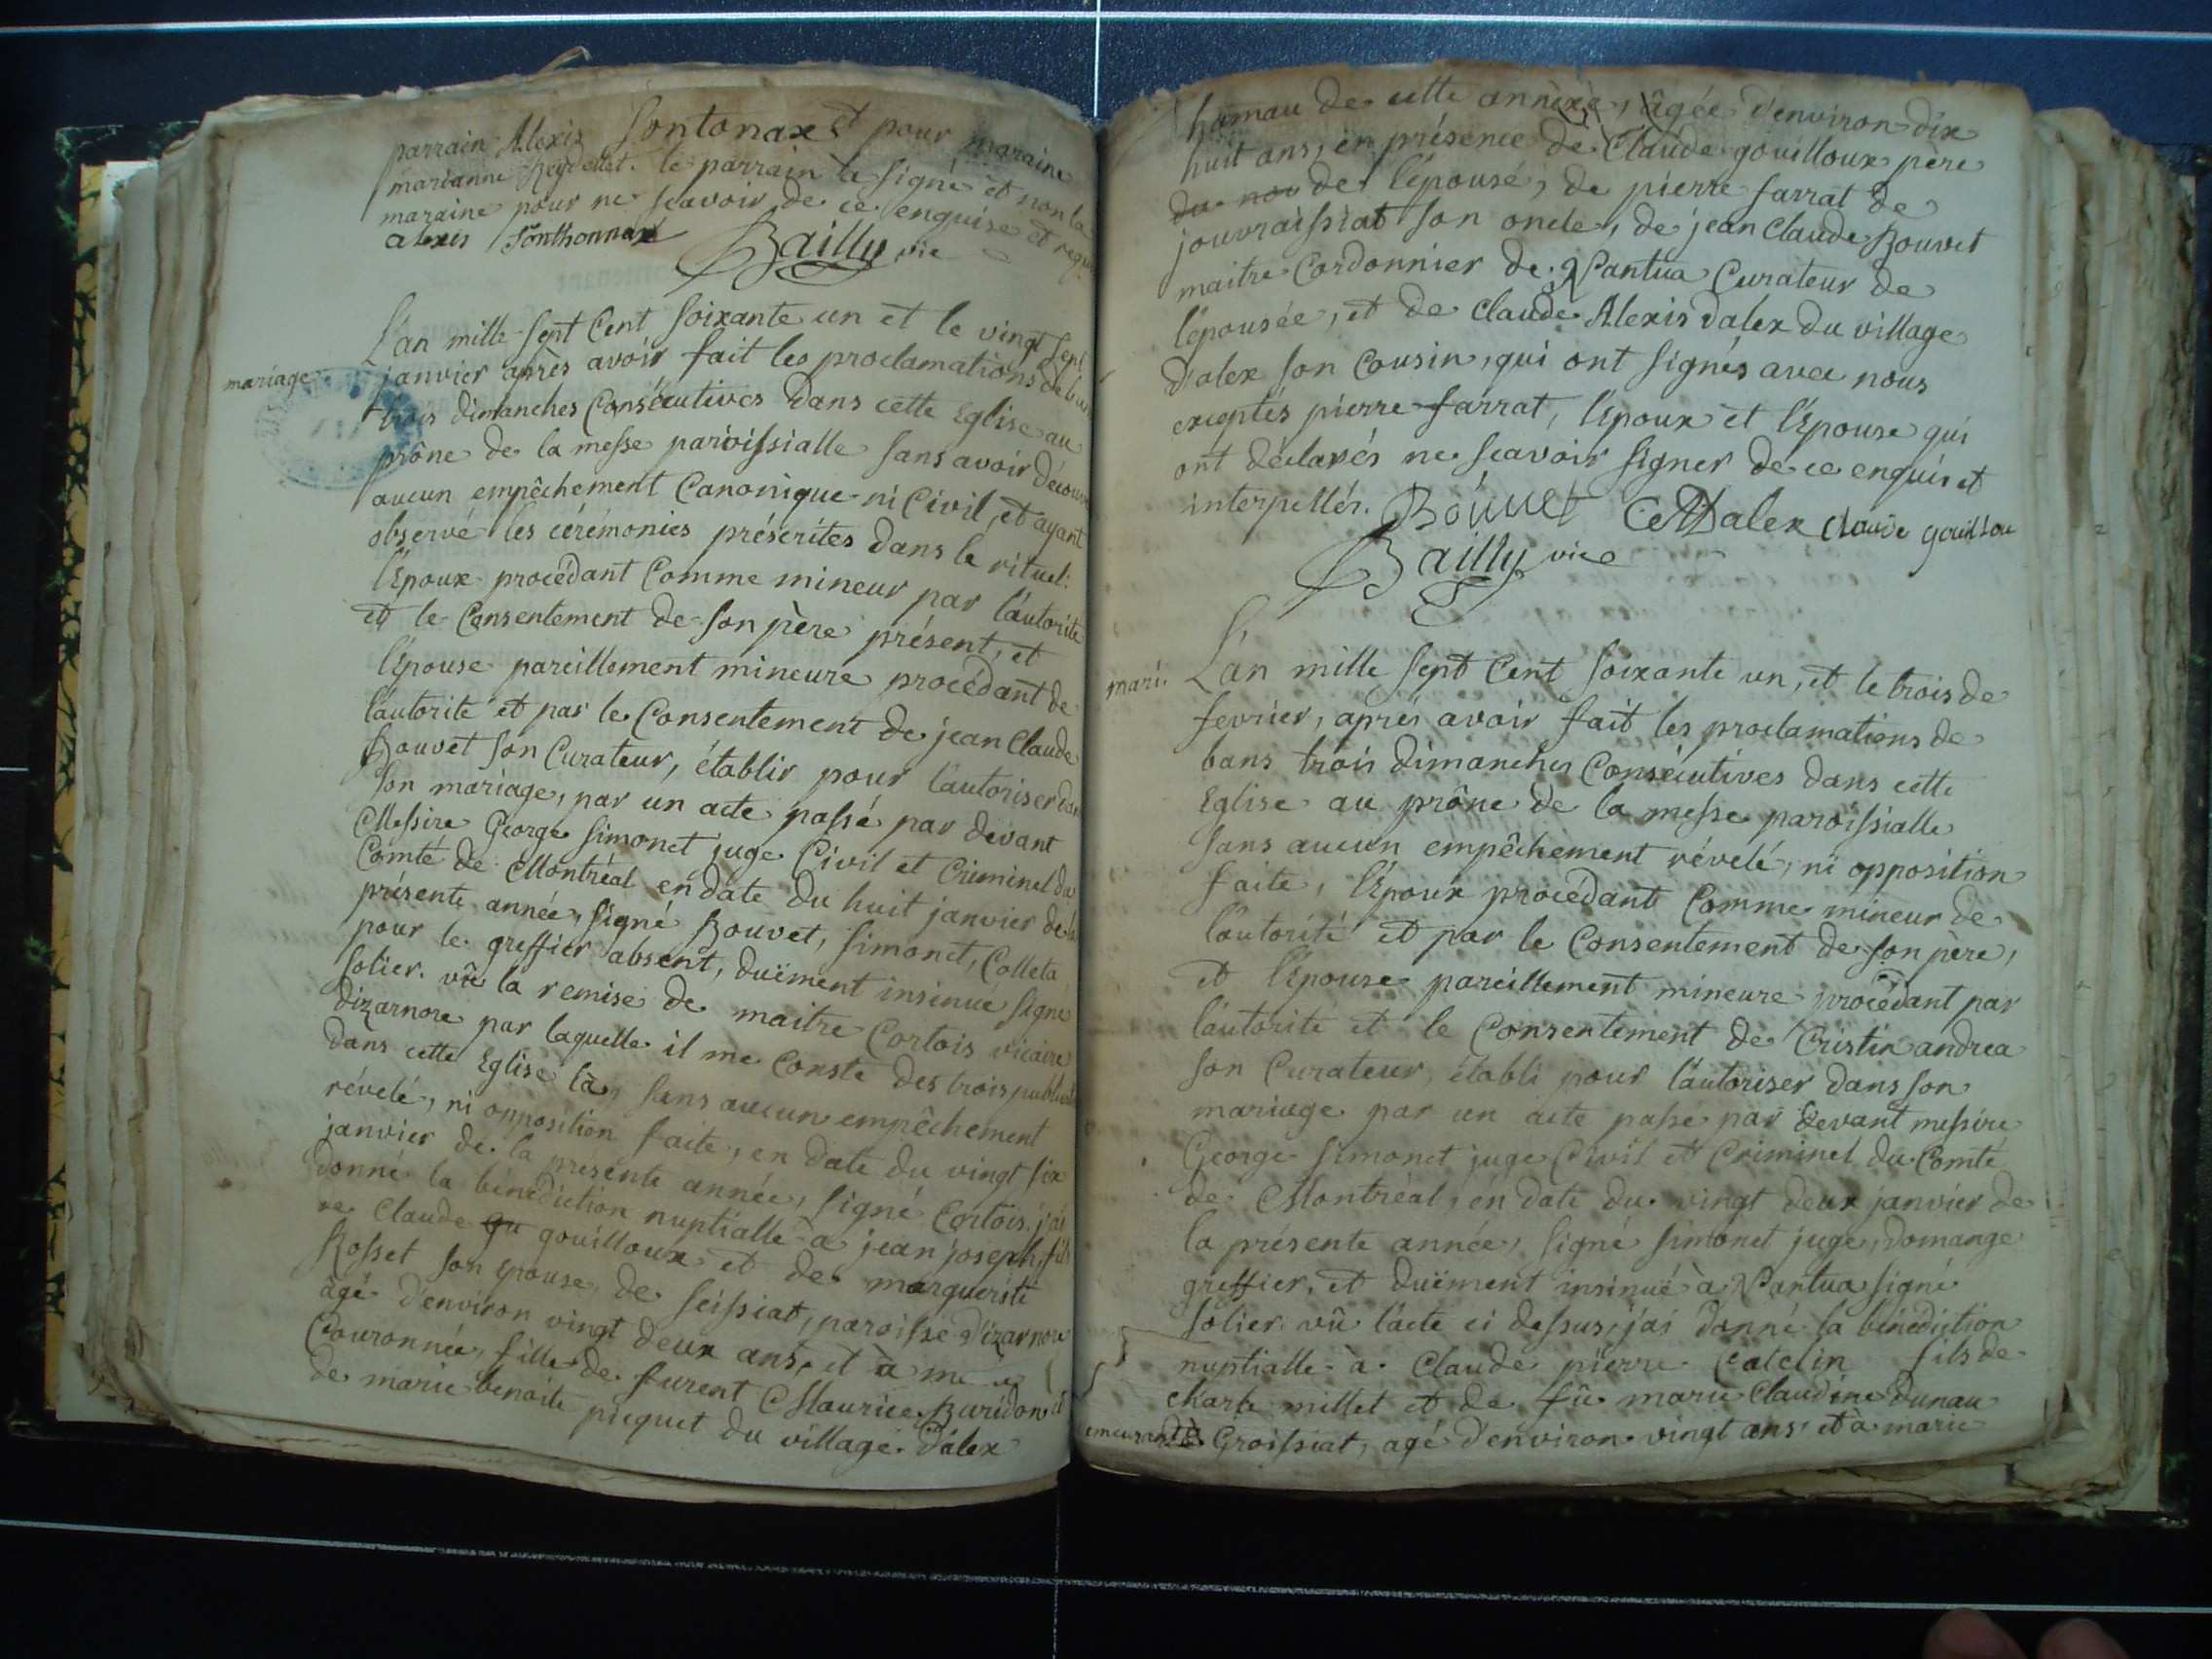 parrain Alexis Sontonax et pour maraine
marianne Reydellet. le parrain a signé et non la
maraine pour ne scavoir de ce enquise et requise
alexis Sonthonnax Bailly vic
mariage
L'an mille sept cent soixante un et le vingt sept
janvier après avoir fait les proclamations de bans
trois dimanches Consécutives dans cette Eglise au
prône de la messe paroissialle sans avoir découvert
aucun empêchement Canonique ni Civil, et ayant
observé les cérémonies préscrites dans le rituel:
l'Epoux procédant Comme mineur par l'autorité
et le Consentement de son père présent, et
l'Epouse pareillement mineure procédant de
l'autorité et par le Consentement de jean Claude
Bouvet son Curateur, établir pour l'autoriser dans
son mariage, par un acte passé par devant
Messire George Simonet juge Civil et Criminel du
Comté de Montréal en date du huit janvier de la
présente année, signé Bouvet, Simonet, Colleta
pour le greffier absent, duëment insinué signé
Solier. vû la remise de maitre Cortois vicaire
dizarnore par laquelle il me Conste des trois
dans cette Eglise là sans aucun empêchement
révelé, ni opposition faite, en date du vingt six
janvier de la présente année, signé Cortois. j'ai
donné la bénédiction nuptialle à jean joseph, fils
de Claude gu gouilloux et de marguerite
Rosset son epouse, de Seissiat, paroisse d'izarnore
âgé d'environ vingt deux ans, et à
Couronnée, fille de furent Maurice Buridon et
de marie benoite picquet du village d'alex
hamau de cette annèxe, âgée d'environ dix
huit ans, en présence de Claude gouilloux père
du nou de l'épousé, de pierre farrat de
jouvraissiat son oncle, de jean Claude Bouvet
maitre Cordonnier de Nantua Curateur de
l'épousée, et de claude Alexis dalex du village
d'alex son Cousin, qui ont signés avec nous
exceptés pierre farrat, l'Epoux et l'Epouse qui
ont déclarés ne scavoir signer de ce enquis et
interpellés. Bouvet CADalex claude gouillou
Bailly vic
mari.
L'an mille sept Cent soixante un, et le trois de
fevrier, après avoir fait les proclamations de
bans trois dimanches Consécutives dans cette
Eglise au prône de la messe paroissialle
sans aucun empêchement révelé, ni opposition
faite, l'Epoux procédant Comme mineur de
l'autorité et par le Consentement de son père,
et l'Epouse pareillement mineure procédant par
l'autorité et le Consentement de Cristin andrea
son Curateur, établi pour l'autoriser dans son
mariage par un acte passé par devant messire
George Simonet juge Civil et Criminel du Comté
de Montréal, en date du vingt deux janvier de
la présente année, signé simonet juge, Domange
greffier, et duëment insinué à Nantua signé
Solier. vû l'acte ci dessus, j'ai donné la bénédiction
nuptialle à Claude pierre Catelin fils de
charle millet et de fû marie Claudine Dunau
emeurant à Groissiat, agé d'environ vingt ans, et à marie